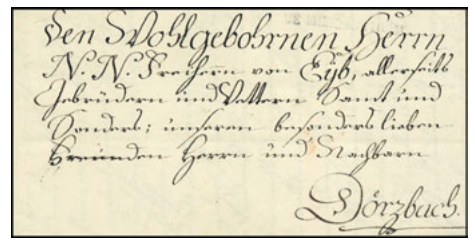 Den Wohlgebohrnen Herrn
N. N. Freiherrn von Eyb, allerseits
Gebrüdern und Vettern Samt und
Sonders; unseren besonders lieben
Freunden Herrn und Nachbarn
Dörzbach.